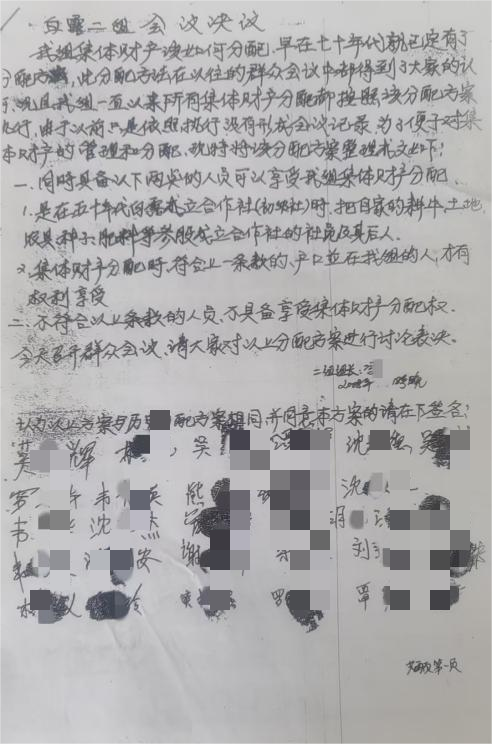 白露二组会议决议
我组集体财产该如何分配,早在七十年代就已定有了
分配方案,此分配方法在以往的群众会议中都得到了大家的认
可,况且我组一直以来所有集体财产分配都按照该分配方案
执行,由于以前只是依照执行没有形成会议记录,为了便于对集
体财产的管理和分配,现特将该分配方案整理成文如下:
一、同时具备以下两类的人员可以享受我组集体财产分配.
1.是在五十年代白露成立合作社(初级社)时,把自家的耕牛、土地、
农具、种子、肥料等参股成立合作社的社员及其后人.
2.集体财产分配时,符合上一条款的,户口并在我组的人,才有
权利享受
二、不符合以上条款的人员,不具备享受集体财产分配权.
今天召开群众会议,请大家对以上分配方案进行讨论表决.
二组组长:
认为以上方案与历 配方案相同,并同意本方案的请在下签名:
辉 吴 沈
韦 英 熊 沈
韦 沈 杰
安 谢 刘
罗 覃
第一页